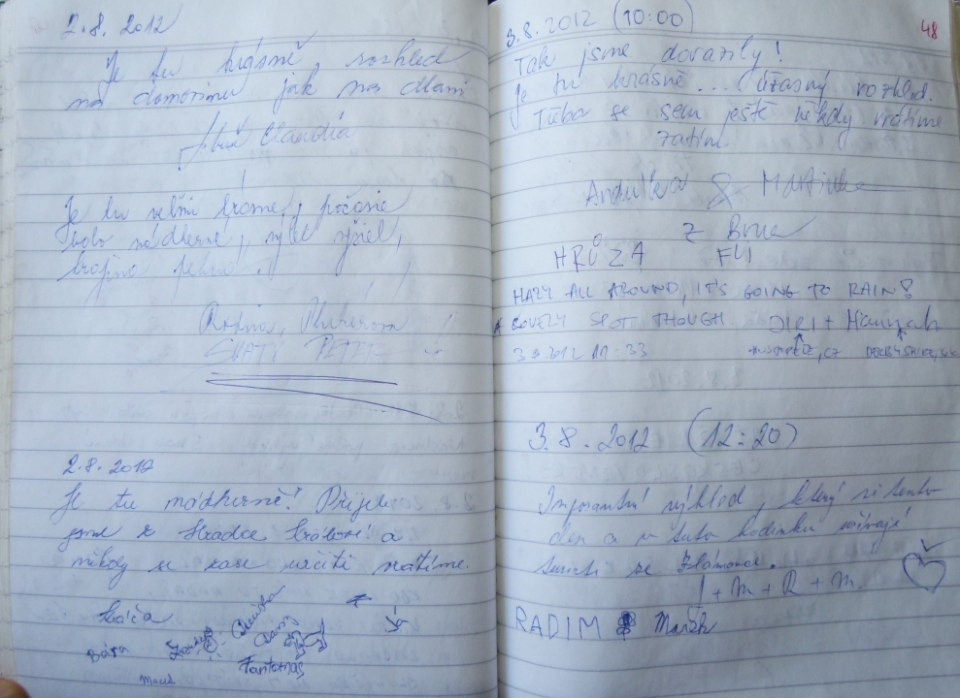 2.8.2012
Je tu krásně, rozhled
na jak na dlani
Claudia
Je tu veľmi krásne, počasie
bolo nádherné, výlet vyšiel,
krajina
SVÄTÝ
2.8.2012
Je tu nádherně! Přijeli
jsme z Hradce Králové a
někdy se zase určitě vrátíme.
Káča
Bára
Fantomas
3.8.2012 (10:00)
48
Tak jsme dorazily!
Je tu krásně... Úžasný rozhled.
Třeba se sem ještě někdy vrátíme
zatím
Andulka & Martinka
z Brna
HRŮZA FUJ
HAZY ALL AROUND, IT'S GOING TO RAIN?
A LOVELY SPOT THOUGH JIRI + Hannah
3 8 2012 11:33
3.8.2012 (12:20)
Impozantní výhled, který si tento
den a v tuto hodinku užívají
turisti ze
J + M + R + M.
RADIM